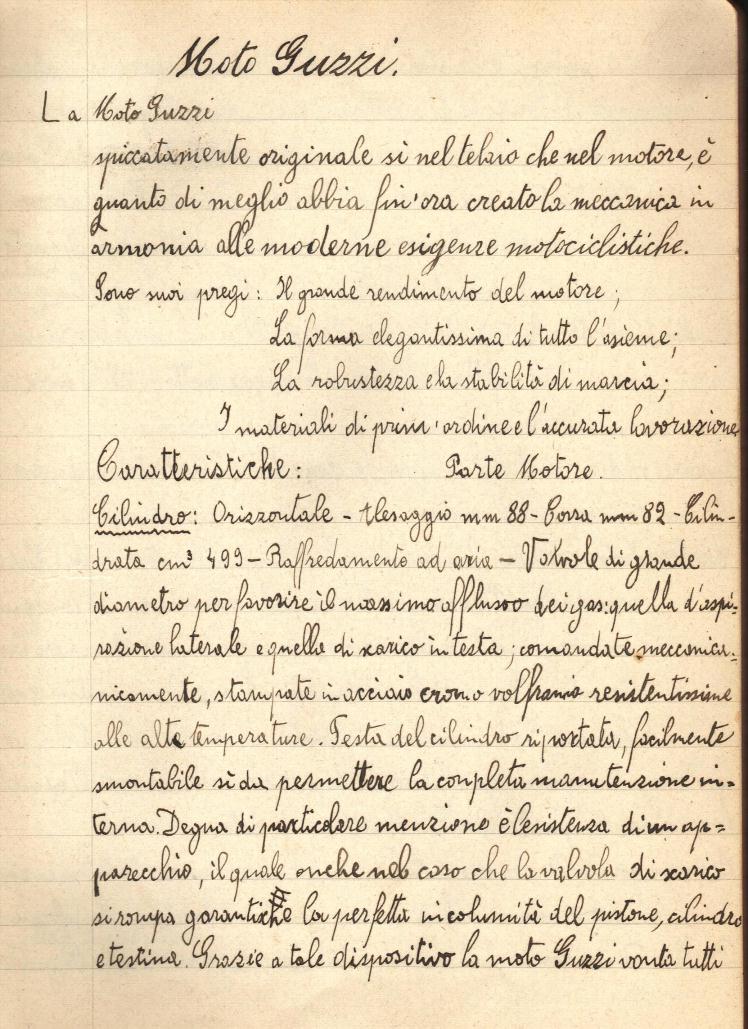 Moto Guzzi.
La Moto Guzzi
spiccatamente originale sì nel telaio che nel motore, è
quanto di meglio abbia fin'ora creato la meccanica in
armonia alle moderne esigenze motociclistiche.
Sono suoi pregi: Il grande rendimento del motore;
La forma elegantissima di tutto l'asieme;
La robustezza e la stabilità di marcia;
I materiali di prim'ordine e l'accurata lavorazione
Caratteristiche: Parte Motore.
Cilindro: Orizzontale - Alesaggio mm 88 - Corsa mm 82 - Cilin-
drata cm³ 499 - Raffredamento ad aria - Valvole di grande
diametro per favorire il massimo afflusso dei gas: quella d'aspi-
razione laterale e quella di scarico in testa; comandate meccanica-
nicamente, stampate in acciaio cromo volframio resitentissime
alle alte temperature. Testa del cilindro riportata, facilmente
smontabile sì da permettere la completa manutenzione in=
terna. Degna di particolare menzione è l'esistenza di un ap=
parecchio, il quale anche nel caso che la valvola di scarico
si rompa garantiche la perfetta incolumità del pistone, cilindro
e testina. Grazie a tale dispositivo la moto Guzzi vanta tutti